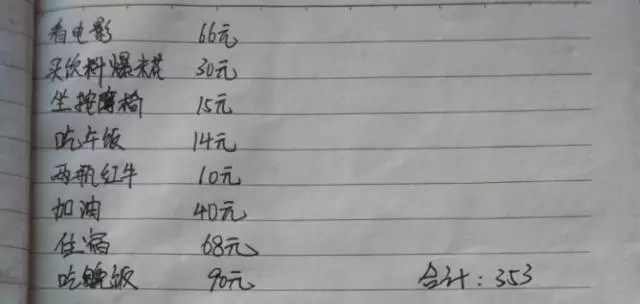 看电影 66元
买饮料爆米花 30元
坐按摩椅 15元
吃午饭 14元
两瓶红牛 10元
加油 40元
住宿 68元
吃晚饭 90元 合计:353